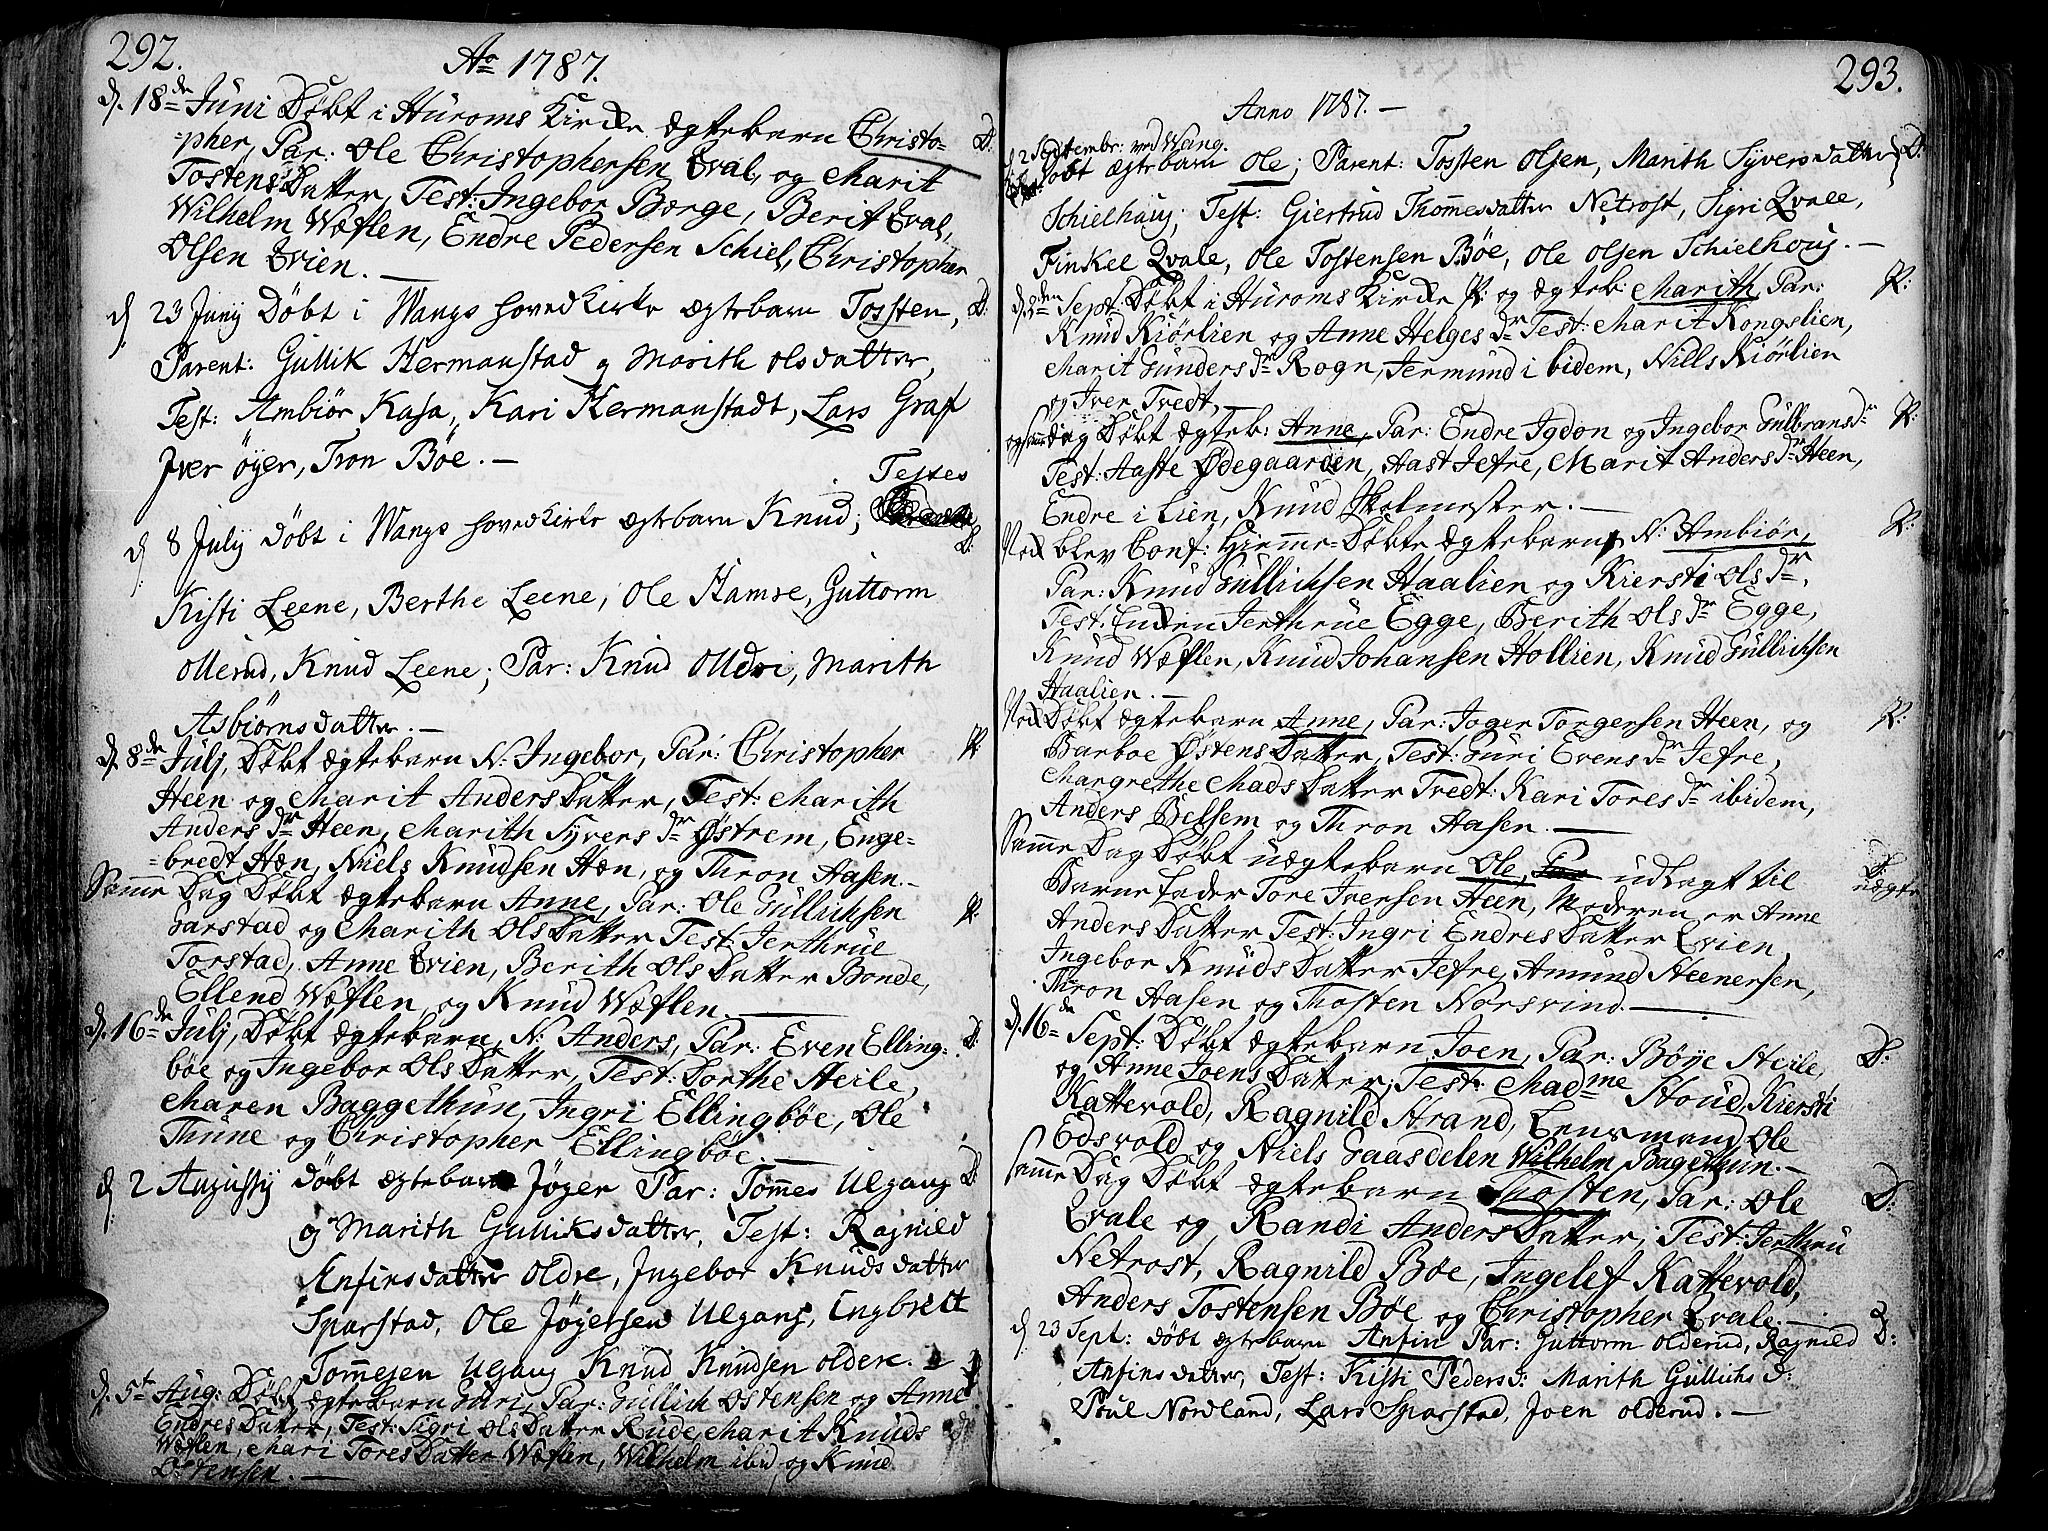 292.
Ao 1787.
d. 18de Juni Døbt i Huroms Kirke ægtebarn Christo= D:
=pher, Par: Ole Christophersen Qval, og Marit
Tostens Datter, Test: Ingebor Børge, Berit Qval,
Wilhelm Wæflen, Endre Pedersen Schiel, Christopher
Olsen Qvien. —
d 23 Junÿ Døbt i Wangs hovedkirke ægtebarn Tosten, D:
Parent: Gullik Hermanstad og Marith olsdatter,
Test: Ambiør Kasa, Kari Hermanstadt, Lars Graf
Iver øÿer, Tron Böe. —
Testes
d 8 Julÿ døbt i Wangs hovedkirke ægtebarn Knud; D:
Kisti Leene, Berthe Leene, Ole Hamre, Guttorm
ollerud, Knud Leene; Par: Knud olldri, Marith
Asbiørnsdatter. —
d. 8de Julj, Døbt ægtebarn N: Ingebor, Par: Christopher R:
Heen og Marit Anders Datter, Test: Marith
Anders dr Heen, Marith Syvers dr Østrem, Enge=
=bredt Hæn, Niels Knudsen Hæn, og Thron Aasen. —
Samme Dag Døbt ægtebarn Anne, Par: Ole Gullichsen R:
Garstad og Marith Ols Datter Test: Jerthrue
Torstad, Anne Qvien, Berith Ols Datter Bonde,
Ellend Wæflen og Knud Wæflen. —
d. 16de Julj, Døbt ægtebarn, N: Anders, Par: Even Elling= D:
bøe og Ingebor Ols Datter, Test: Dorthe Steile,
Maren Baggethun, Ingri Ellingbøe, Ole
Thune og Christopher Ellingbøe. —
d 2 Augustÿ døbt ægtebarn Jøger Par: Tommes Ulgang D:
og Marith Gulliksdatter, Test: Ragnild
Anfinsdatter Oldre, Ingebor Knudsdatter
Sparstad, Ole Jøgersen Ulgang, Engbrett
Tommesen Ulgang Knud Knudsen oldere.
d. 5t Aug: Døbt ægtebarn Guri, Par: Gullich Ostensen og Anne
Endres Datter, Test: Sigri Ols Datter Rude, Marit Knuds dr
Wæflen, Mari Tores Datter Wæflen, Wilhelm ibid og Knud
Ostensen. —
293.
Anno 1787. —
d 2 Septembr: ved Wang.
døbt ægtebarn Ole; Parent: Tosten Olsen, Marith Syversdatter D:
Schielhaug; Test: Giertrud Thommesdatter Netrost, Sigri Qvale,
Finkel Qvale, Ole Tostensen Böe, Ole Olsen Schielhoug. —
d. 3den Sept: Døbt i Huroms Kirke R: og ægteb: Marith, Par: R:
Knud Kiörlien og Anne Helges dr Test: Marit Kongslien,
Marit Gunders dr Rogn, Jermund ibidem, Nills Kiörlien
og Iver Tvedt, —
og samme dag Døbt ægteb: Anne, Par: Endre Igdon og Ingebor Gulbrans dr R:
Test: Aaste Ødegaarden, Aast Jefre, Marit Anders dr Heen,
Endre i Lien, Knud Skolmester. —
Nock blev Conf: hiemme-Døbte ægtebarn N: Ambiör, R:
Par: Knud Gullichsen Haalien og Kiersti Ols dr,
Test: Enken Jerthrue Egge, Berith Ols dr Egge,
Knud Wæflen, Knud Johansen Hollien, Knud Gullichsen
Haalien. —
Nock Døbt ægtebarn Anne, Par: Joger Torgersen Heen, og R:
Barboe Østens Datter, Test: Guri Evens dr Jefre,
Margrethe Mads Datter Tvedt: Kari Tores dr ibidem,
Anders Belsem og Thron Aasen. —
Samme Dag Døbt uægtebarn Ole, udlagt til D:
Barnefader Tore Iversen Heen, Moderen er Anne uægte
Anders Datter Test: Ingri Endres Datter Qvien,
Ingebor Knuds Datter Jefre, Amund Steenersen,
Thron Aasen og Thosten Norsvind. —
d. 16de Sept: Døbt ægtebarn Joen, Par: Böÿe Steile, D:
og Anne Joens Datter, Test: Madme Stoud, Kiersti
Kattevold, Ragnild Strand, Lensmand Ole
Edsvold og Niels Gaasdelen Wilhelm Bagethun. —
Samme Dag Døbt ægtebarn Thosten, Par: Ole D:
Qvale og Randi Anders Datter, Test: Jerthru
Netrost, Ragnild Böe, Ingelef Kattevold,
Anders Tostensen Böe og Christopher Qvale. —
d 23 Sept: døbt ægtebarn Anfin Par: Guttorm olderud, Ragnild D:
Anfinsdatter, Test: Kisti Peders d: Marith Gullichs d:
Poul Nordland, Lars Sparstad, Joen olderud. —